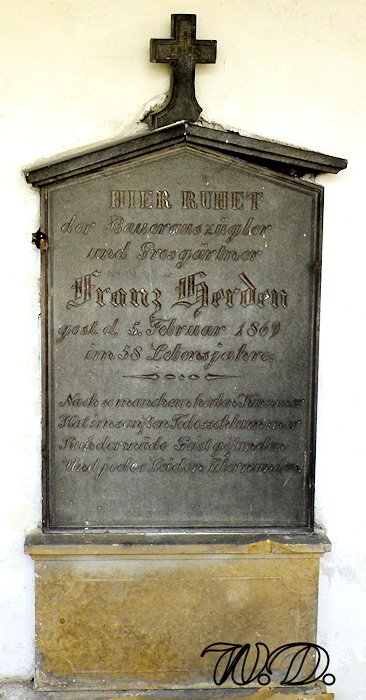 IHS
HIER RUHET
der Bauerauszügler
und Grosgärtner
Franz Herden
gest. d. 5. Februar 1869
im 58 Lebensjahre.
Nach so manchem herben Kummer
Hat im sanften Todesschlummer
Ruh der müde Gast gefunden
Und jedes Leiden überwunden.
W.D.